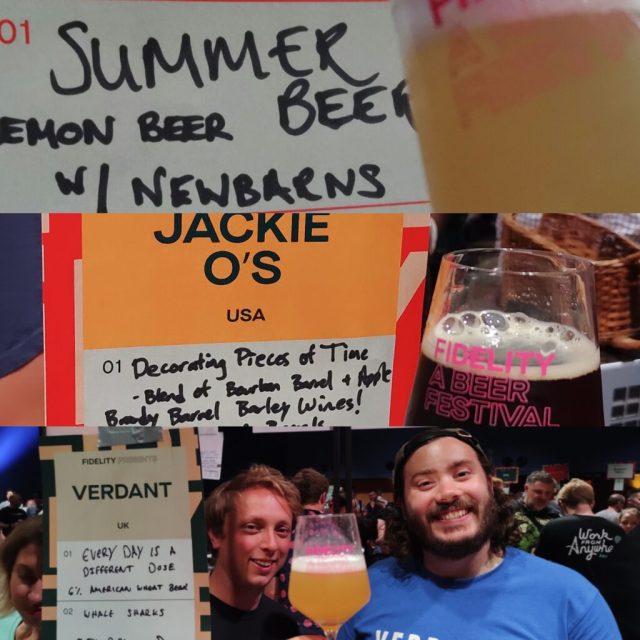 01
SUMMER
BEER
LEMON BEER
W/ NEWBARNS
JACKIE
O'S
USA
01 Decorating Pieces of Time
- Blend of Bourbon Barrel + Apple
Brandy Barrel Barley Wines!
FIDELITY
A BEER
FESTIVAL
FIDELITY PRESENTS
VERDANT
UK
01 EVERY DAY IS A
DIFFERENT DOSE
6% AMERICAN WHEAT BEER
02 WHALE SHARKS
FIDELITY
Work
From
Anywhere